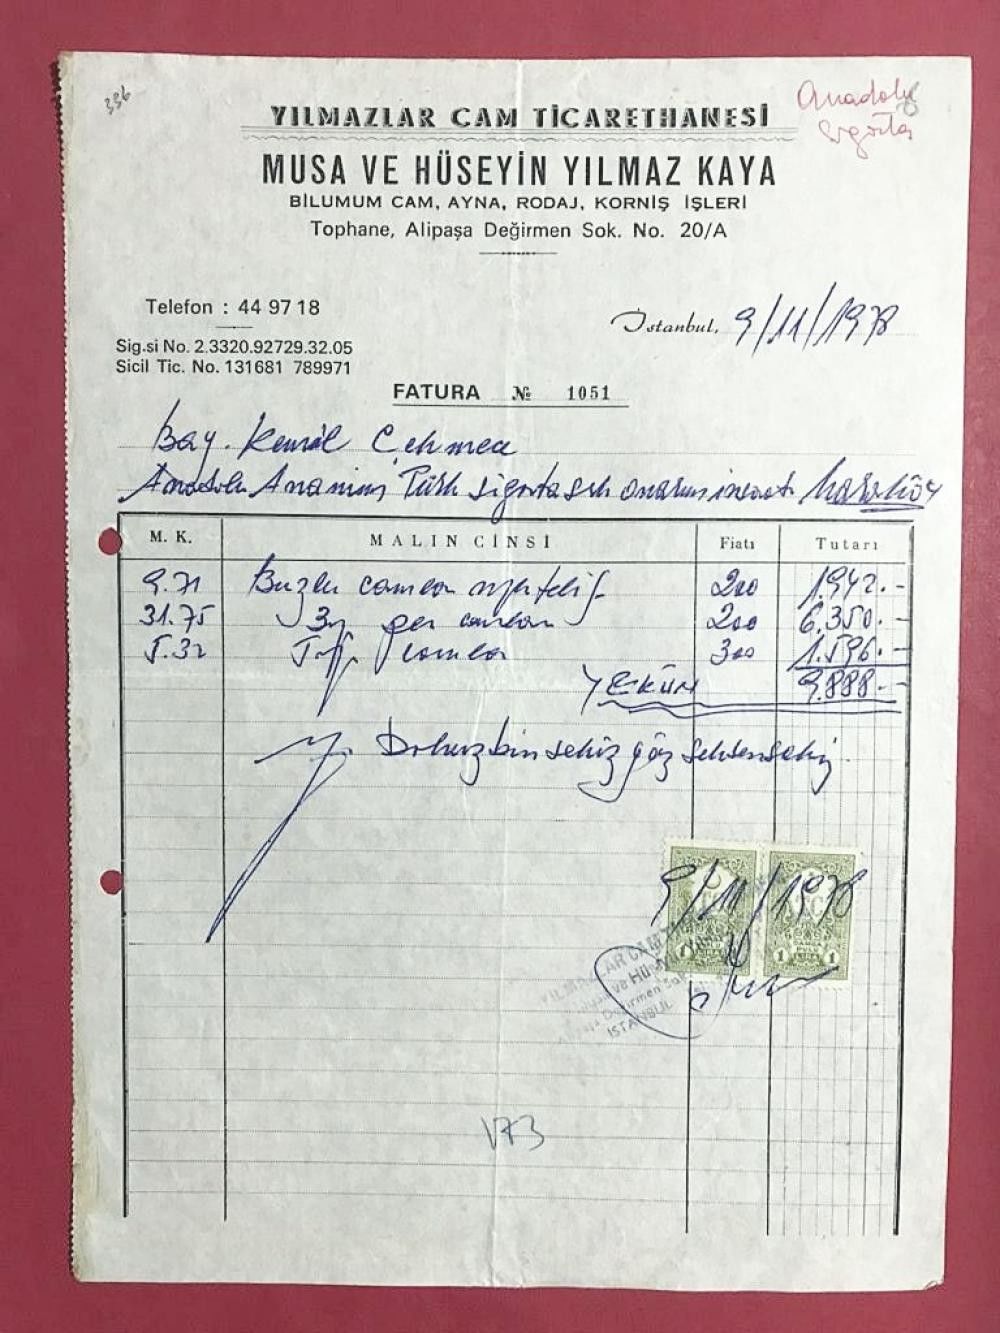 336
Anadolu
sigorta
YILMAZLAR CAM TİCARETHANESİ
MUSA VE HÜSEYİN YILMAZ KAYA
BİLUMUM CAM, AYNA, RODAJ, KORNİŞ İŞLERİ
Tophane, Alipaşa Değirmen Sok. No. 20/A
Telefon : 44 97 18
İstanbul, 9/11/1978
Sig.si No. 2.3320.92729.32.05
Sicil Tic. No. 131681 789971
FATURA № 1051
Bay. Kemal
Anadolu Anonim Türk Sigorta onarım inşaatı Karaköy
M. K. MALIN CİNSİ Fiatı Tutarı
9.71 Buzlu camdan 200 1.942.-
31.75 3 camdan 200 6.350.-
5.32 camdan 300 1.596.-
YEKÜN 9.888.-
Yl. Dokuzbinsekizyüz seksensekiz
9/11/1978
YILMAZLAR CAM
Musa ve Hüseyin
Değirmen Sok.
İSTANBUL
1 1 1
173